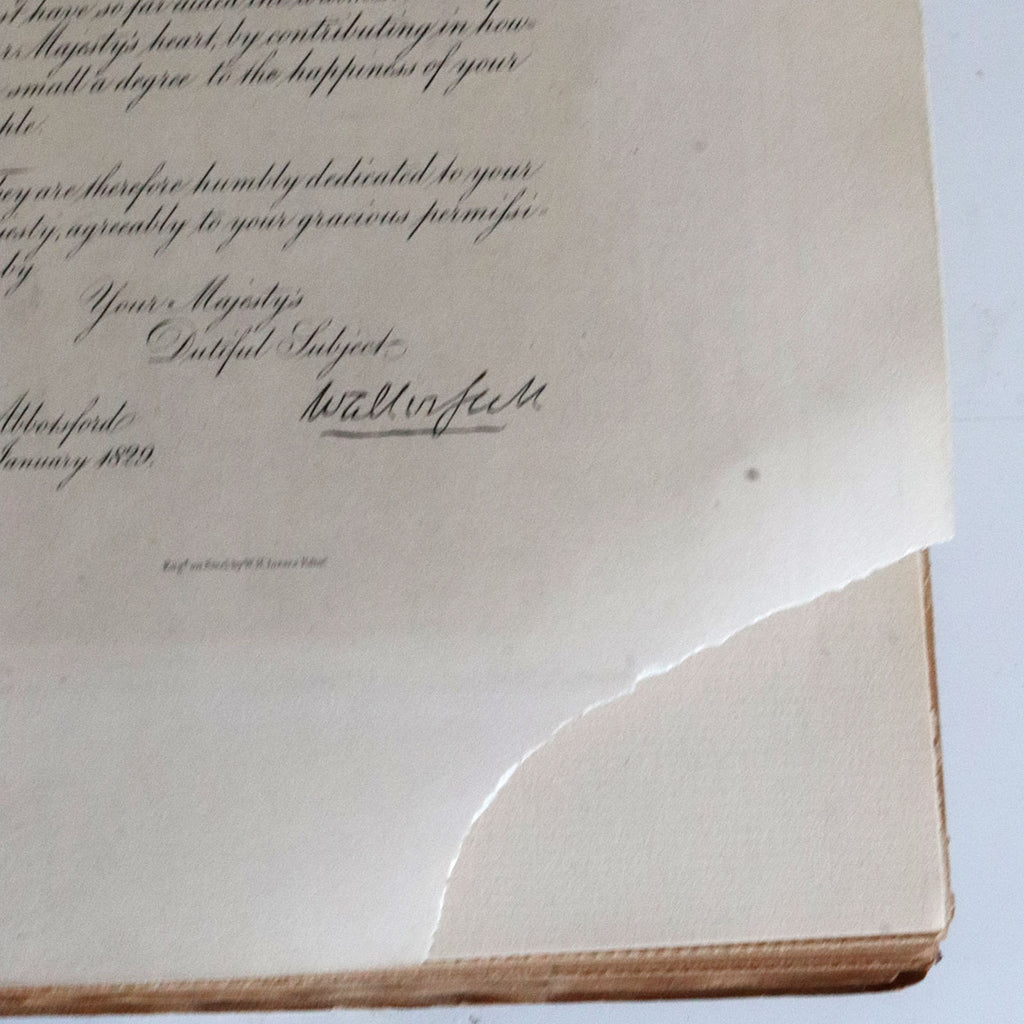 have so far aided the
Majesty's heart, by contributing in how-
small a degree to the happiness of your
ple.
They are therefore humbly dedicated to your
jesty, agreeably to your gracious permissi-
by
Your Majesty's
Dutiful Subject
Walter Scott
Abbotsford
January 1829.